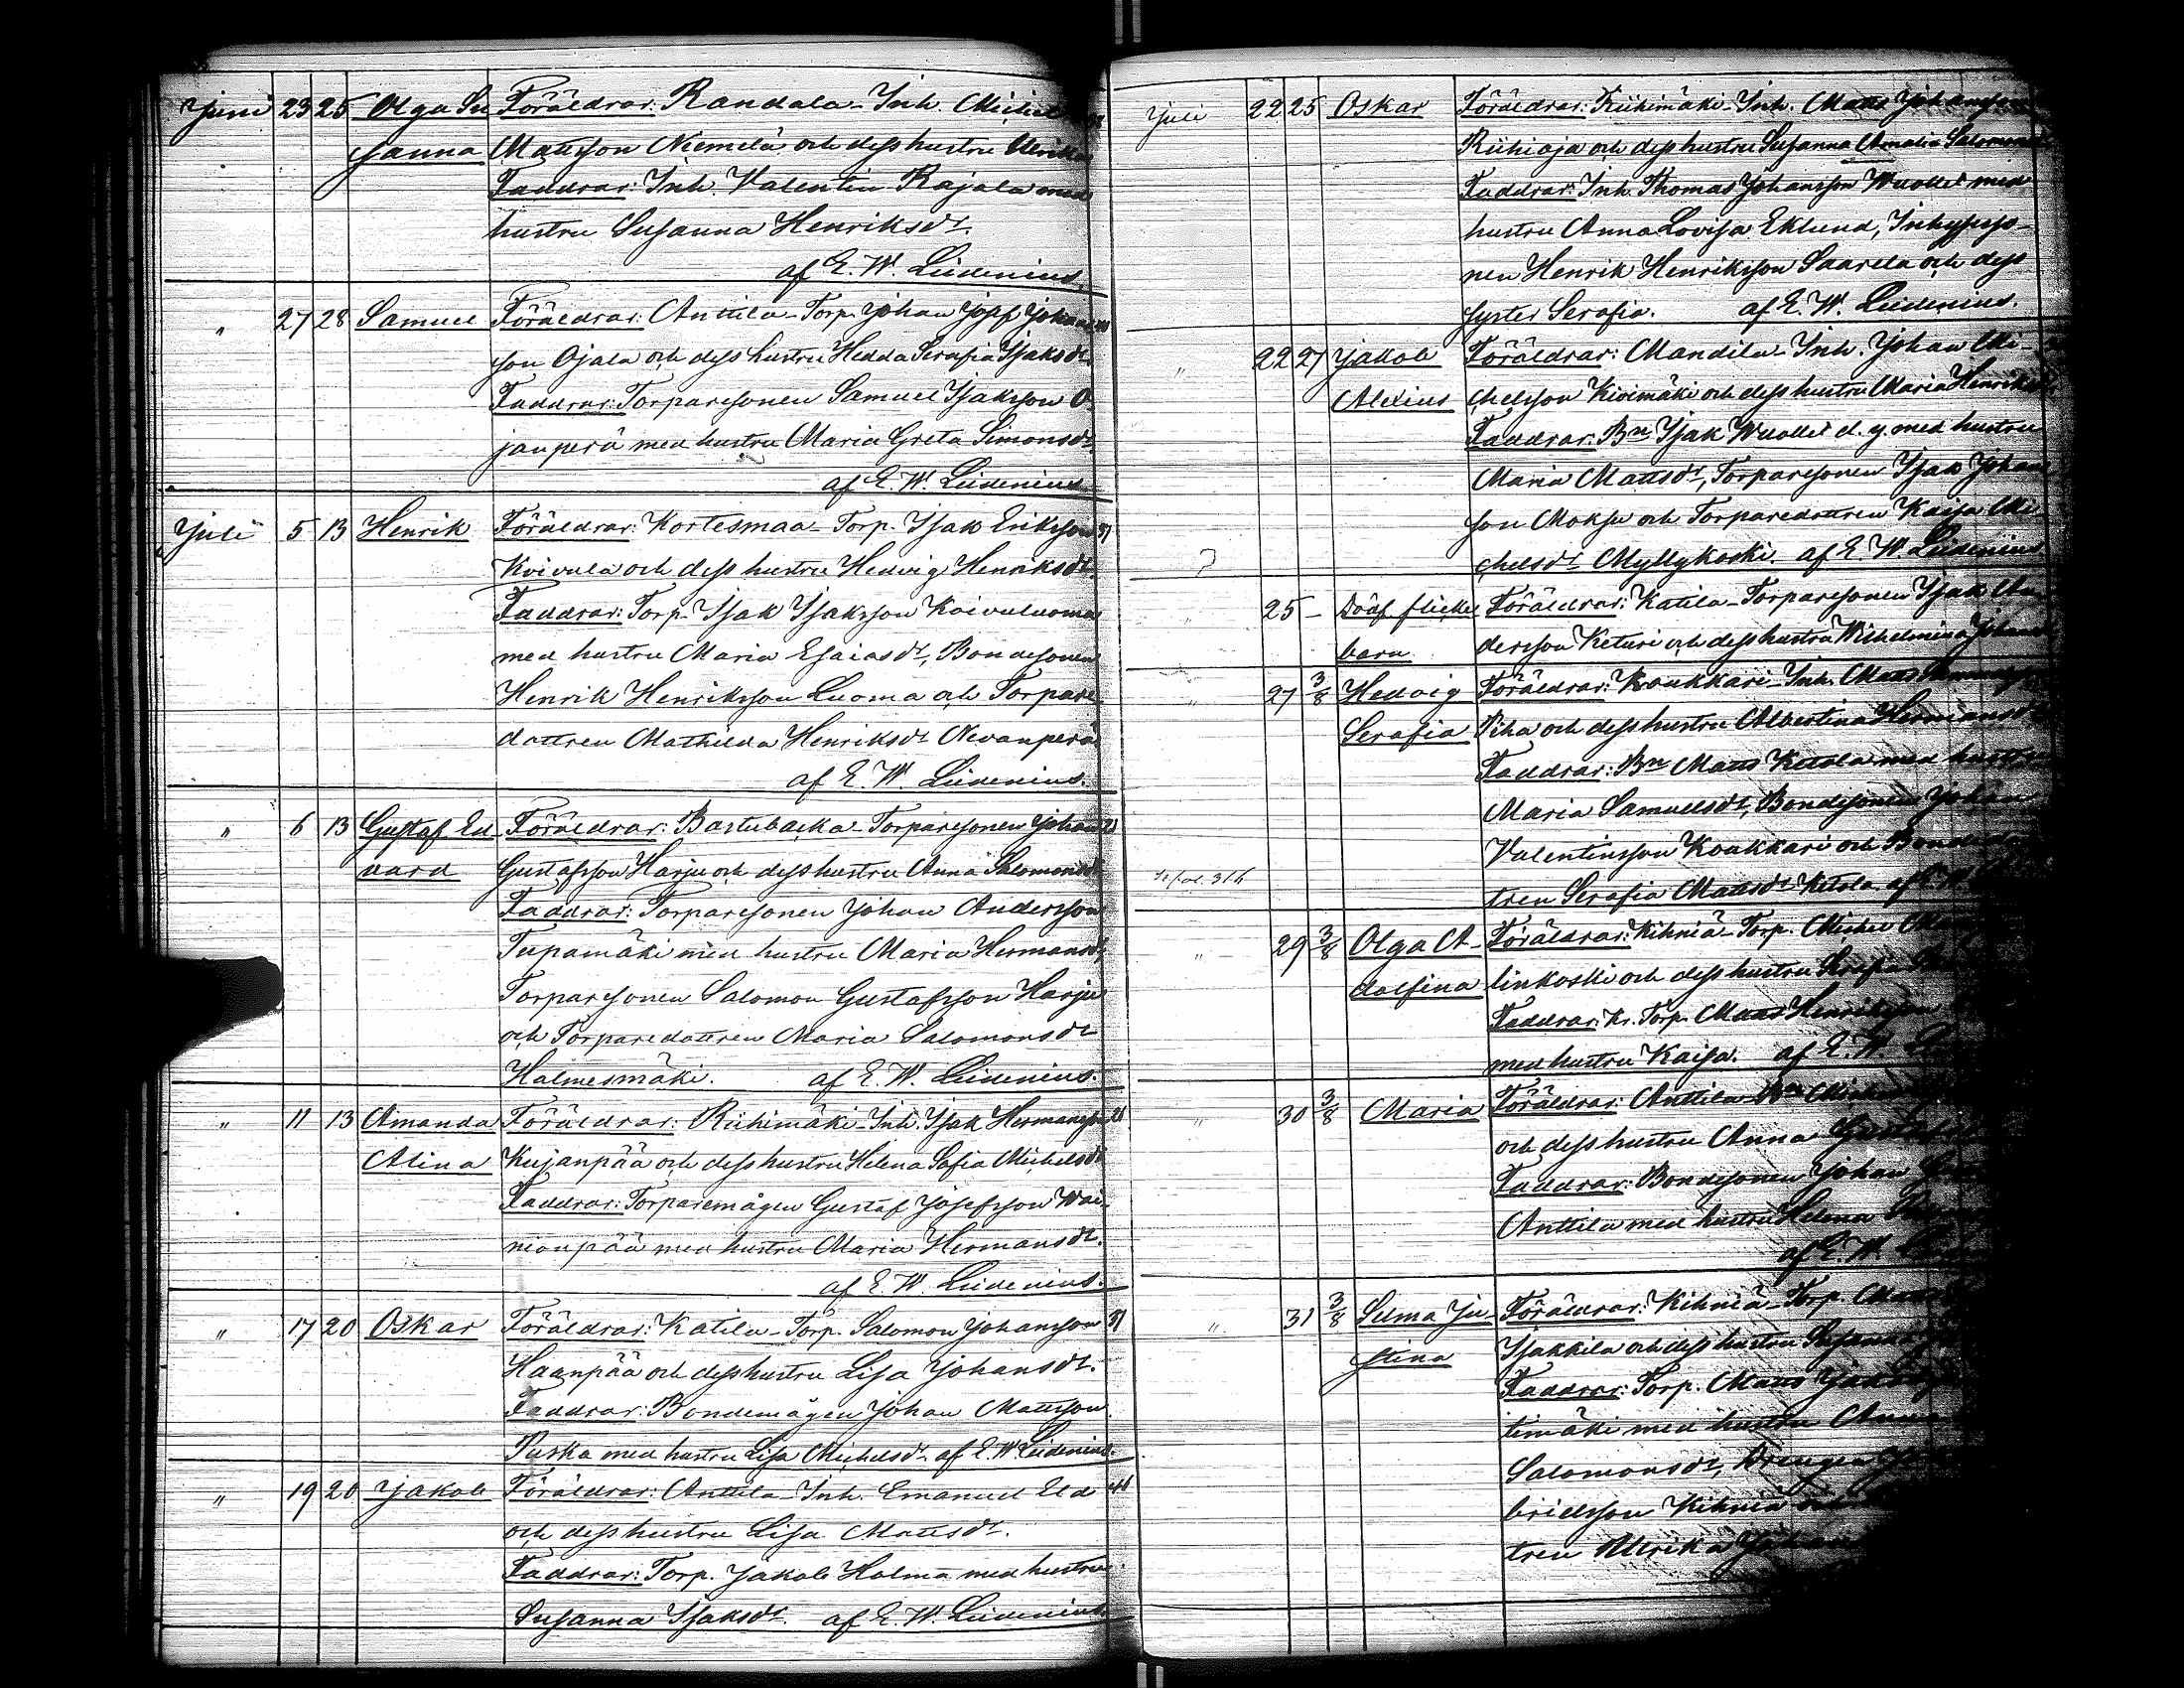 Juni 23 25 Olga Su Föräldrar: Randala-Inh. Michel
sanna Mattsson Niemelä och dess hustru Ulrika
Faddrar: Inh. Valentin Rajala med
hustru Susanna Henriksdr.
af E. W. Lüdenius.
" 27 28 Samuel Föräldrar: Anttila-Torp. Johan Josef Johans
son Ojala och dess hustru Hedda Serafia Isaksdr.
Faddrar: Torparesonen Samuel Isaksson O
janperä med hustru Maria Greta Simonsdr
af E. W. Lüdenius
Juli 5 13 Henrik Föräldrar: Kortesmaa-Torp. Isak Eriksson
Koivula och dess hustru Hedvig Henriksdr.
Faddrar: Torp. Isak Isaksson Koivuluoma
med hustru Maria Esaiasdr, Bondesonen
Henrik Henriksson Luoma och Torpare
dottren Mathilda Henriksdr Nevanperä
af E. W. Lüdenius.
" 6 13 Gustaf Ed Föräldrar: Bastubacka-Torparesonen Johan
vard Gustafsson Harju och dess hustru Anna Salomonsdr
Faddrar: Torparesonen Johan Andersson
Teepamäki med hustru Maria Hermansdr,
Torparesonen Salomon Gustafsson Harju
och Torparedottren Maria Salomonsdr
Halmesmäki. af E. W. Lüdenius.
" 11 13 Amanda Föräldrar: Riihimäki-Inh. Isak Hermansson
Alina Kujanpää och dess hustru Helena Sofia Michelsdr
Faddrar: Torparemågen Gustaf Josefsson Wai
nionpää med hustru Maria Hermansdr.
af E. W. Lüdenius.
" 17 20 Oskar Föräldrar: Katila-Torp. Salomon Johansson
Haanpää och dess hustru Lisa Johansdr.
Faddrar: Bondemågen Johan Mattsson
Puska med hustru Lisa Michelsdr. af E. W. Lüdenius.
" 19 20 Jakob Föräldrar: Anttila-Inh. Emanuel Eld
och dess hustru Lisa Mattsdr.
Faddrar: Torp. Jakob Holma med hustru
Susanna Isaksdr. af E. W. Lüdenius
Juli 22 25 Oskar Föräldrar: Riihimäki-Inh. Matts Johansson
Riihioja och dess hustru Susanna Amalia Salomonsdr
Faddrar: Inh. Thomas Johansson Wuollet med
hustru Anna Lovisa Eklund, Inhysesso-
nen Henrik Henriksson Saarela och dess
syster Serafia. af E. W. Lüdenius.
" 22 27 Jakob Föräldrar: Mandila-Inh. Johan Mi-
Alexius chelsson Kivimäki och dess hustru Maria Henriksdr
Faddrar: Bn Isak Wuollet d. y. med hustru
Maria Mattsdr, Torparesonen Isak Johans
son Moksu och Torparedottren Kaisa Mi
chelsdr Myllykoski. af E. W. Lüdenius.
" 25 – Dödf. flicke Föräldrar: Katila-Torparesonen Isak An
barn dersson Keturi och dess hustru Wilhelmina Johansdr
" 27 3/8 Hedvig Föräldrar: Koukkari-Inh. Matts
Serafia Piha och dess hustru Albertina Hermansdr
Faddrar: Bn Matts Ketola med hustru
Maria Samuelsdr, Bondesonen Johan
Valentinsson Koukkari och Bondedot
Se fol. 316 tren Serafia Mattsdr Ketola. af E. W.
" 29 3/8 Olga A- Föräldrar: Kihniä-Torp. Michel
dolfina linkoski och dess hustru Serafia
Faddrar: Kr. Torp. Matts Henriksson
med hustru Kaisa. af E. W.
" 30 3/8 Maria Föräldrar: Anttila-Bn Michel
och dess hustru Anna
Faddrar: Bondesonen Johan
Anttila med hustru Helena
af E. W.
" 31 3/8 Selma Ju- Föräldrar: Kihniä-Torp. Matts
stina Isakkila och dess hustru Susanna
Faddrar: Torp. Matts
timäki med hustru Anna
Salomonsdr, Drengen
brielsson Kihniä och
tren Ulrika